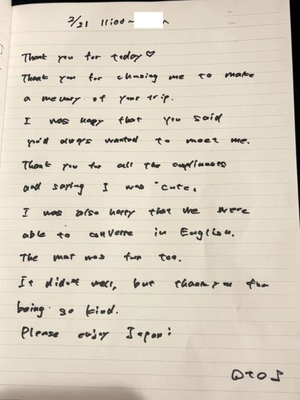 2/21 11:00~
Thank you for today♡
Thank you for chusing me to make
a memory of your trip.
I was happy that you said
you'd always wanted to meet me.
Thank you for all the compliments
and saying I was cute.
I was also happy that we were
able to converse in English.
The mat was fun too.
It didn't well, but thank you for
being so kind.
Please enjoy Japan!